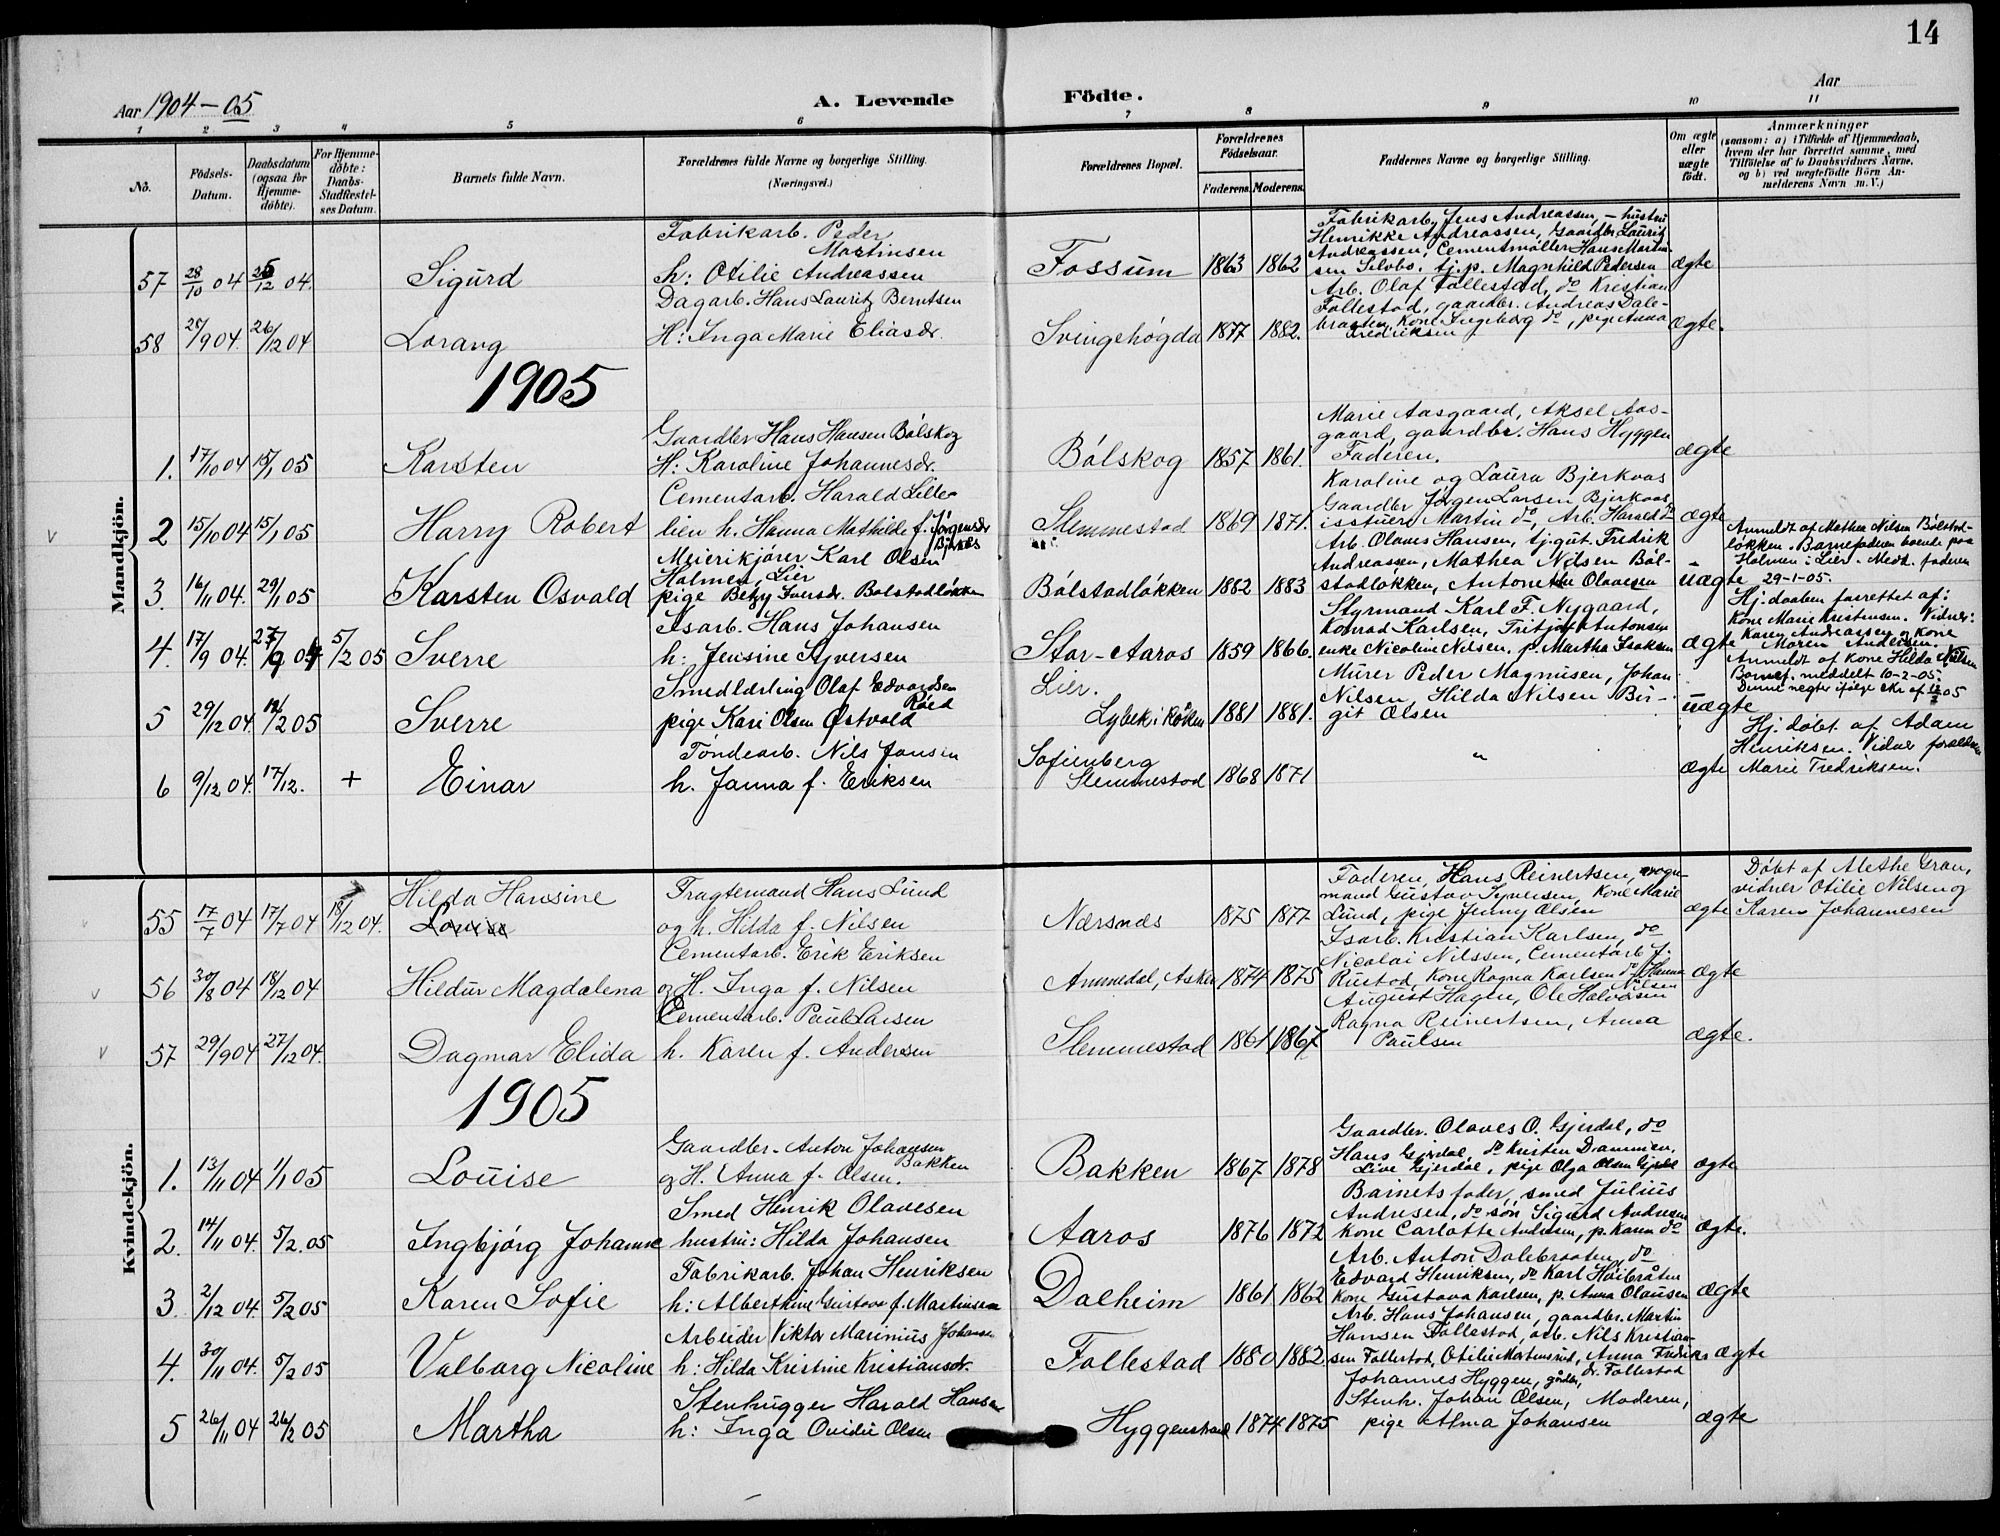 14
Aar 1904-05
A. Levende Födte.
Aar
1 2 3 4 5 6 7 8 9 10 11
No.
Födsels-Datum.
Daabsdatum (ogsaa for Hjemme-döbte).
For Hjemme-döbte: Daabs-Stadfæstel-ses Datum.
Barnets fulde Navn.
Forældrenes fulde Navne og borgerlige Stilling. (Næringsvei.)
Forældrenes Bopæl.
Forældrenes Födselsaar.
Faderens. Moderens.
Faddernes Navne og borgerlige Stilling.
Om ægte eller uægte födt.
Anmærkninger
(saasom: a) i Tilfælde af Hjemmedaab, hvem der har forrettet samme, med Tilföielse af to Daabsvidners Navne, og b) ved uægtefödte Börn An-melderens Navn m. V.)
Mandkjön.
57 28/10 04 26/12 04. Sigurd
Fabrikarb. Peder Martinsen
h: Otilie Andreassen
Fossum 1863 1862
Fabrikarb. Jens Andreassen, - hustru
Henrikke Andreassen, Gaardbr. Lauritz
Andreassen, Cementmöller Hans Martin-
sen Selvbo. tj.p. Magnhild Pedersen
ægte
58 20/9 04. 26/12 04 Lorang
Dagarb. Hans Lauritz Berntsen
H: Inga Marie Eliasdr.
Svingehøgda 1877 1882.
Arb. Olaf Follestad, do Kristian
Follestad, gaardbr. Andreas Dale-
braaten, Kone Ingeborg do, pige Anna
Fredriksen
ægte.
1905
1. 17/10 04 15/1 05 Karsten
Gaardbr Hans Hansen Bølskog
H: Karoline Johannesdr.
Bölskog 1857 1861.
Marie Aasgaard, Aksel Aas-
gaard, gaardbr. Hans Hyggen
Faderen.
ægte
2 15/10 04 15/1 05 Harry Robert
Cementarb. Harald Lille-
lien h. Hanna Mathilde f. Jørgensdr
Bjerkaas
Slemmestad 1869 1871.
Karoline og Laura Bjerkaas
Gaardbr Jørgen Larsen Bjerkaas,
isstuer Martin do, Arb. Harald do
ægte
3. 16/11 04. 29/1 05 Karsten Osvald
Meierikjører Karl Olsen
Holmen, Lier
pige Betzy Iversdr. Bølstadløkken
Bölstadlökken 1882 1883
Arb. Olaves Hansen, tj.gut. Fredrik
Andreassen, Mathea Nilsen Böl-
stadløkken, Antonette Olavesen
uægte
Anmeldt af Mathea Nilsen Bølstad-
løkken. Barnefaderen boende paa
Holmen i Lier. Medt. faderen
29-1-05.
4. 17/9 04. 27/9 04 5/2 05 Sverre
Isarb. Hans Johansen
h: Jensine Syversen
Stor-Aaros 1859 1866.
Styrmand Karl F. Nygaard,
Konrad Karlsen, Tritjof Antonsen
enke Nicoline Nilsen, p. Martha Isaksen
ægte
Hj. daaben forrettet af:
Kone Marie Kristensen. Vidner:
Karen Andreassen og Kone
Maren Andersen.
5 29/12 04. 12/2 05 Sverre
Smedlærling Olaf Edvardsen
Røed
pige Kari Olsen Østvold
Lier.
Lybek i Røken 1881 1881.
Murer Peder Magnusen, Johan
Nilsen, Hilda Nilsen Bir-
git Olsen
uægte
Anmeldt af Kone Hilda Nilsen
Barnef. meddelt 10-2-05.
Denne negter ifølge skr af 05
6 9/12 04. 17/12. + Einar
Töndearb. Nils Jansen
h. Janna f. Eriksen
Sofienberg
Slemmestad 1868 1871
"
ægte
Hj. døbt af Adam
Henriksen. Vidner forældrene
Marie Fredriksen.
Kvindekjön.
55 17/7 04 17/7 04 18/12 04. Hilda Hansine
Louise
Fragtemand Hans Lund
og h. Hilda f. Nilsen
Nærsnæs 1875 1877
Faderen, Hans Reinertsen,
mand Gustav Syversen, Kone Marie
Lund, pige Jenny Olsen
ægte
Döbt af Alethe Gran,
vidner Otilie Nilsen og
Karen Johannesen
56 30/8 04 18/12 04 Hildur Magdalena
Cementarb. Erik Eriksen
og H. Inga f. Nilsen
Ammedal, Asker 1874 1875
Isarb. Kristian Karlsen, do
Nicolai Nilssen, Cementarb J.
Rustad, Kone Ragna Karlsen do Hanna
Nilsen
ægte
57 29/9 04 27/12 04. Dagmar Elida
Cementarb. Paul Larsen
h. Karen f. Andersen
Slemmestad 1861 1867
August Hagen, Ole Halvorsen
Ragna Reinertsen, Anna
Paulsen
ægte.
1905
1. 13/11 04 1/1 05 Louise
Gaardbr. Anton Johansen
Bakken
og H. Anna f. Olsen.
Bakken 1867 1878
Gaardbr. Olaves O. Gjerdal, do
Hans Gjerdal, do Kristen Drammen,
Live Gjerdal, pige Olga Olsen Gjerdal
ægte
2. 14/11 04. 5/2.05 Ingbjørg Johanne
Smed Henrik Olavesen
hustru: Hilda Johansen
Aaros 1876 1872
Barnets fader, smed Julius
Andresen, do søn Sigurd Andresen
Kone Carlotte Andresen, p. Karen do
ægte.
3 2/12 04. 5/2 05 Karen Sofie
Fabrikarb. Johan Henriksen
h: Alberthine Gustava f. Martinsen
Dalheim 1861 1862
Arb. Anton Dalebraaten, do
Edvard Henriksen, do Karl Høibråten
Kone Gustava Karlsen, p. Anna Olausen
ægte
4. 30/11 04. 5/2 05 Valborg Nicoline
Arbeider Viktor Marinius Johansen
h: Hilda Kristine Kristiansdr.
Follestad 1880 1882
Arb. Hans Johansen, gaardbr. Martin
Hansen Follestad, arb. Nils Kristian-
sen Follestad, Otilie Martensrud, Anna Fredriks
dr. Follestad
ægte
5 26/11 04 26/2 05 Martha
Stenhugger Harald Hansen
h: Inga Ovidie Olsen
Hyggenstrand 1874 1875
Johannes Hyggen, gårdbr,
Stenh. Johan Olsen, Moderen,
pige Alma Johansen
ægte